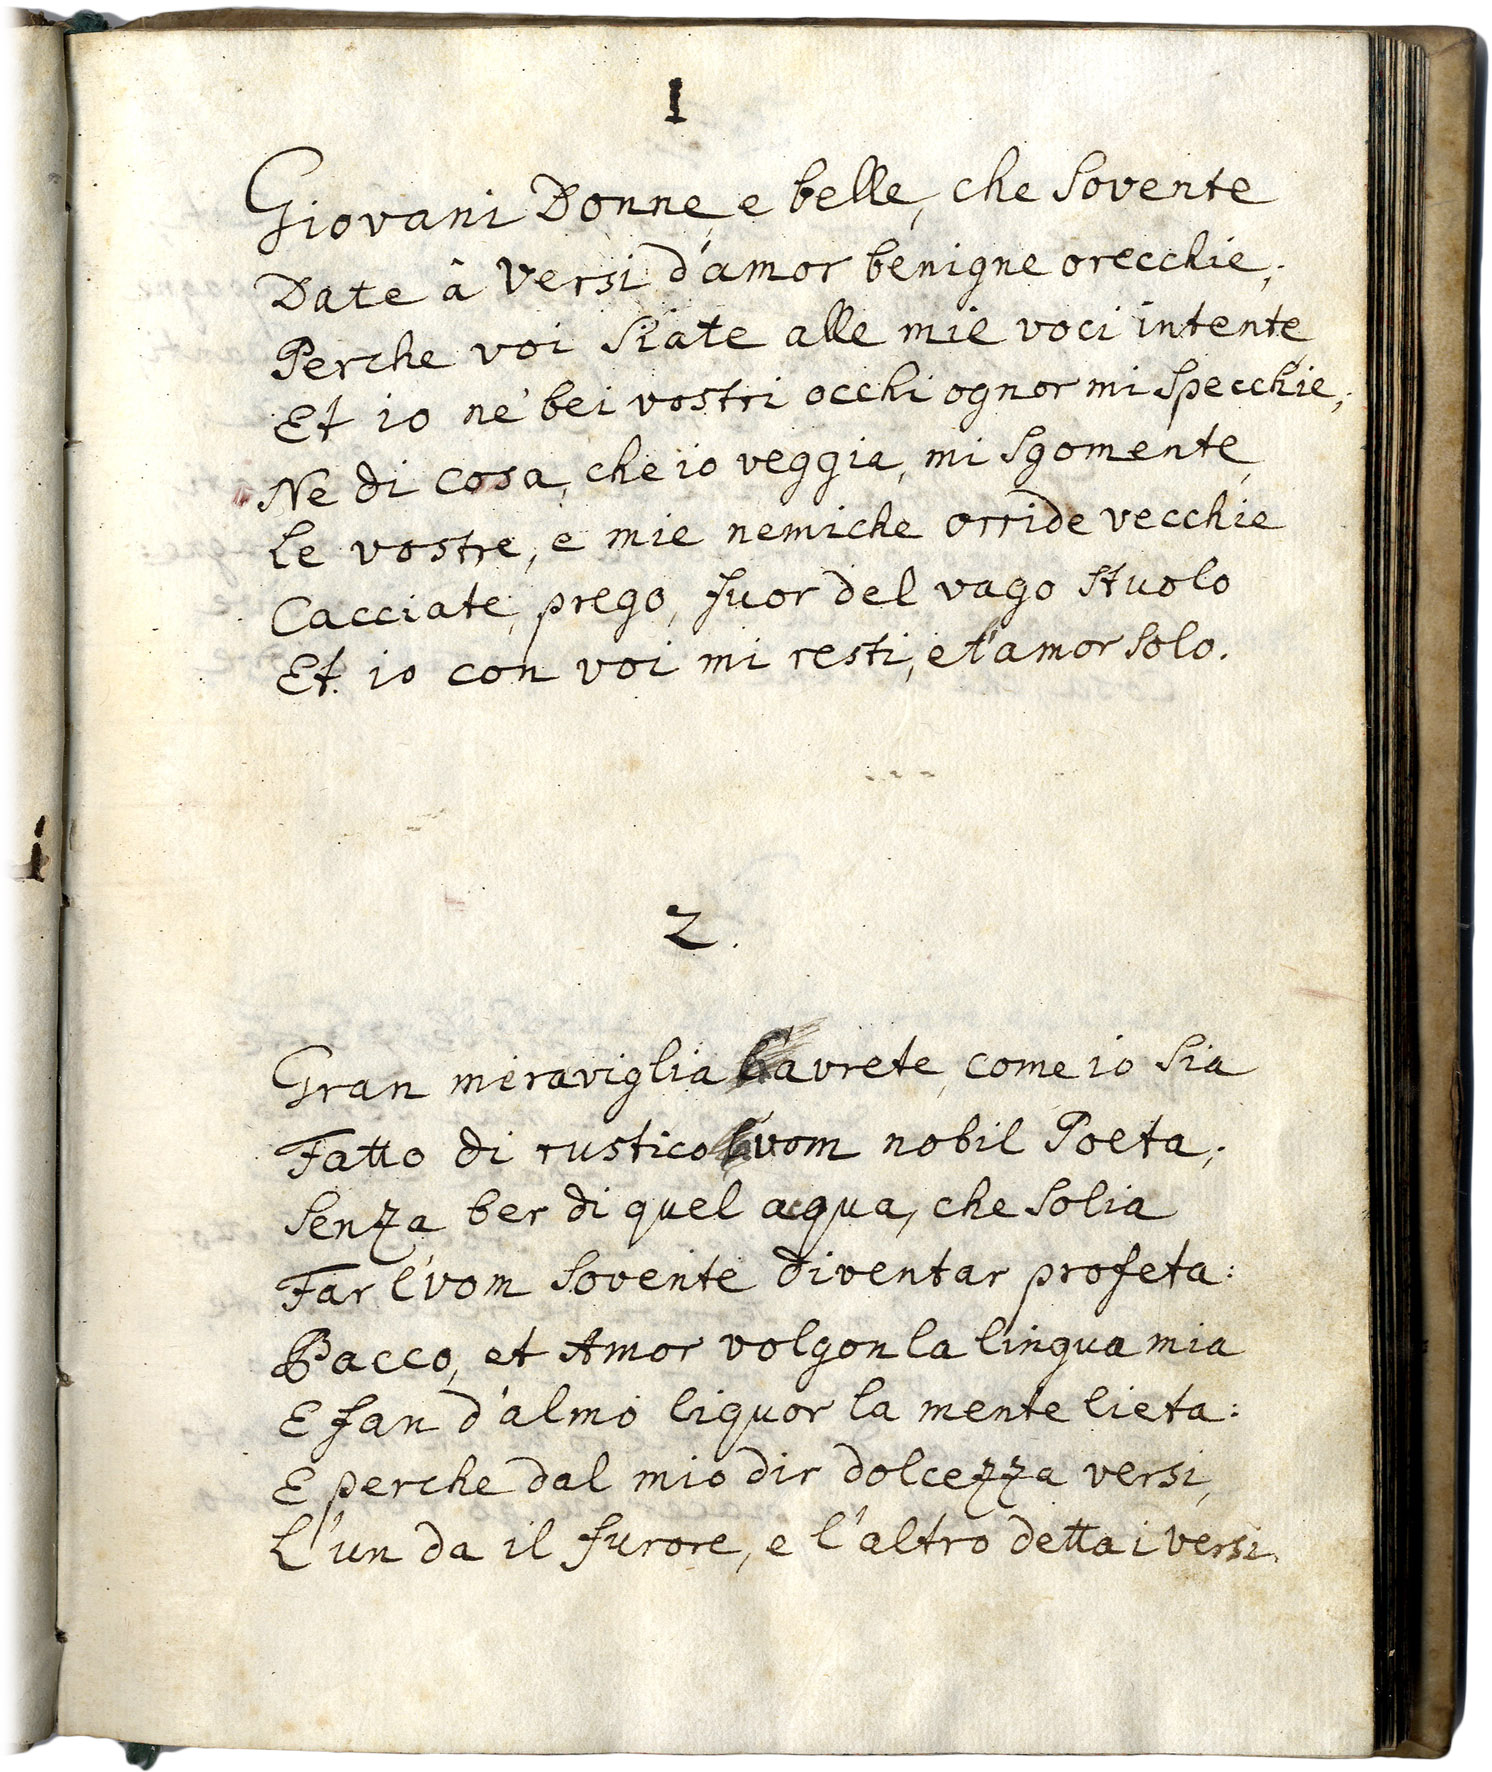 1
Giovani Donne, e belle, che sovente
Date à versi d'amor benigne orecchie;
Perche voi siate alle mie voci intente,
Et io ne' bei vostri occhi ognor mi specchie;
Ne di cosa, che io veggia, mi sgomente,
Le vostre, e mie nemiche orride vecchie
Cacciate, prego, fuor del vago stuolo
Et io con voi mi resti, e l'amor solo.
2.
Gran meraviglia havrete, come io sia
Fatto di rustico huom nobil Poeta;
Senza ber di quel acqua, che solia
Far l'uom sovente diventar profeta:
Bacco, et Amor volgon la lingua mia
E fan d'almo liquor la mente lieta:
E perche dal mio dir dolcezza versi,
L'un da il furore, e l'altro detta i versi.